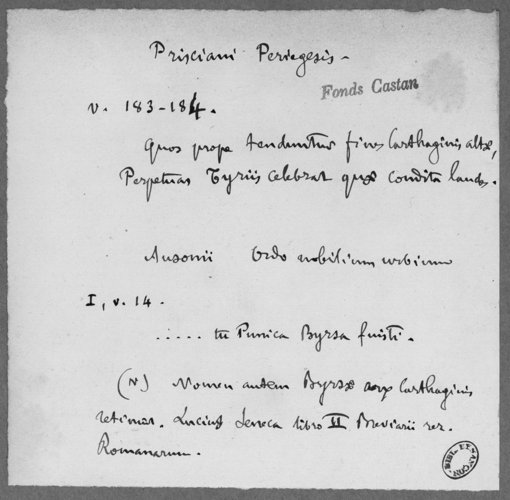 Prisciani Periegesis -
Fonds Castan
v. 183-184.
Quos prope tenduntur fines Carthaginis altæ,
Perpetuas Tyriis celebrat quæ condita laudes.
Ausonii Ordo nobilium urbium
I, v. 14.
..... tu Punica Byrsa fuisti.
(N) Nomen autem Byrsæ arx Carthaginis
retinet. Lucius Seneca libro II Breviarii rer.
Romanarum.
BIBL. BESANÇON